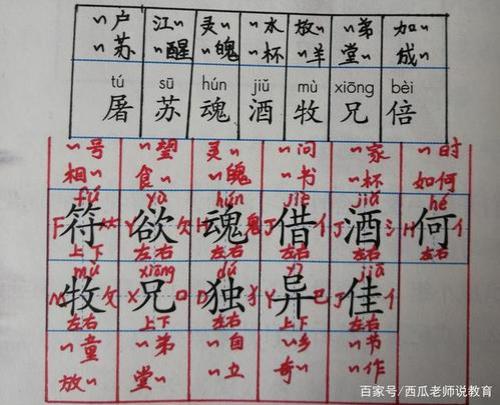 〃户 江〃 灵〃 〃水 放〃 〃弟 加〃
〃苏 〃醒 〃魄 〃杯 〃羊 堂〃 成〃
tú sū hún jiǔ mù xiōng bèi
屠 苏 魂 酒 牧 兄 倍
〃号 〃望 灵〃 〃问 〃家 〃时
相〃 食〃 〃魄 〃书 〃杯 如何
fú yù hún jiè jiǔ hé
F 符 Y 欲 欠 H 魂 鬼 J 借 亻 J 酒 氵 H 何 亻
上下 左右 左右 左右 左右 左右
mù xiōng dú yì jiā
M 牧 攵 X 兄 口 D 独 犭 Y 异 巳 J 佳 亻
左右 上下 左右 上下 左右
〃童 〃弟 〃自 〃乡 〃节
放〃 堂〃 〃立 奇〃 〃作
百家号/西瓜老师说教育